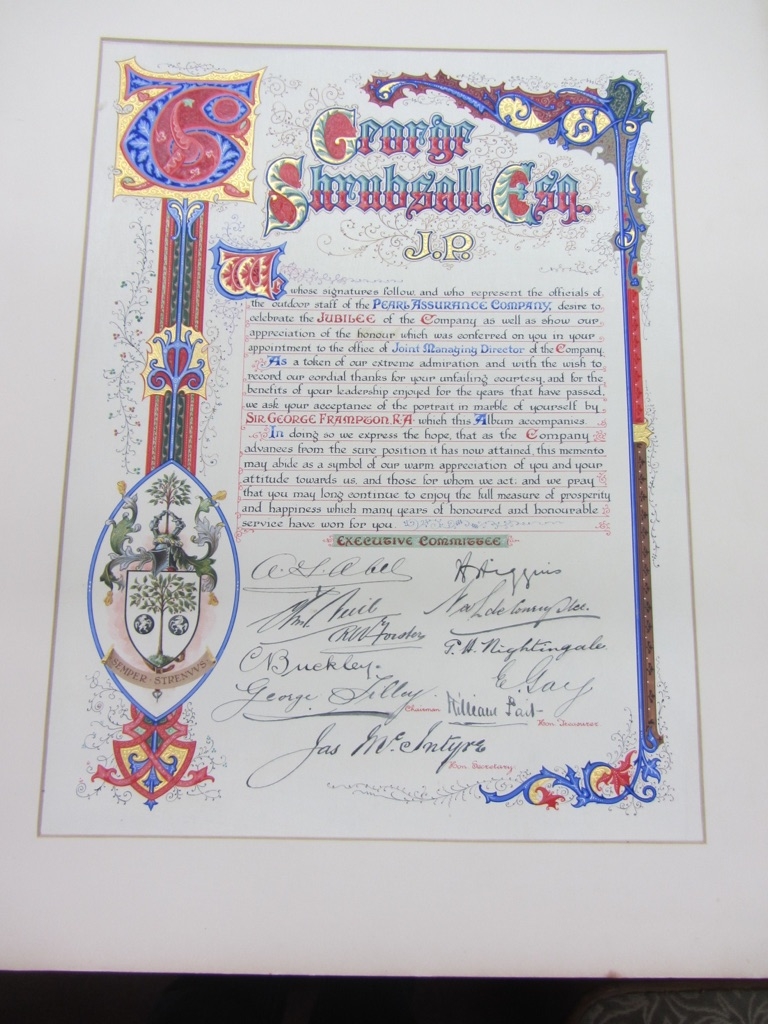 To
George
Shrubsall, Esq.,
J.P.
We whose signatures follow, and who represent the officials of
the outdoor staff of the Pearl Assurance Company, desire to
celebrate the Jubilee of the Company as well as show our
appreciation of the honour which was conferred on you in your
appointment to the office of Joint Managing Director of the Company.
As a token of our extreme admiration and with the wish to
record our cordial thanks for your unfailing courtesy, and for the
benefits of your leadership enjoyed for the years that have passed,
we ask your acceptance of the portrait in marble of yourself by
Sir George Frampton, R.A. which this Album accompanies.
In doing so we express the hope, that as the Company
advances from the sure position it has now attained, this memento
may abide as a symbol of our warm appreciation of you and your
attitude towards us, and those for whom we act; and we pray
that you may long continue to enjoy the full measure of prosperity
and happiness which many years of honoured and honourable
service have won for you.
Executive Committee
A. G. Abel
H Higgins
Wm
P. H. Nightingale
C Buckley.
E. Gay
George Tilley
Chairman
William
Hon. Treasurer
Jas McIntyre
Hon. Secretary
SEMPER STRENVVS